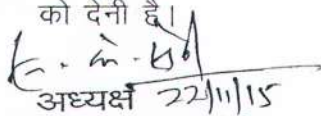 को देनी है।
अध्यक्ष 22/11/15